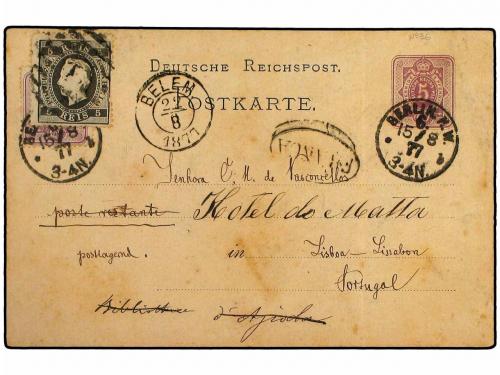 Nº36
DEUTSCHE REICHSPOST.
POSTKARTE.
REIS 5
5
BELEM
22
8
1877
BERLIN N.W.
15/8
77
3-4N.
15/8
77
3-4N.
Senhora C. M. de Vasconcellos
poste restante Hotel do Matta
postlagernd. in Lisboa - Lissabon
Portugal
Bibliothece d'Ajuda